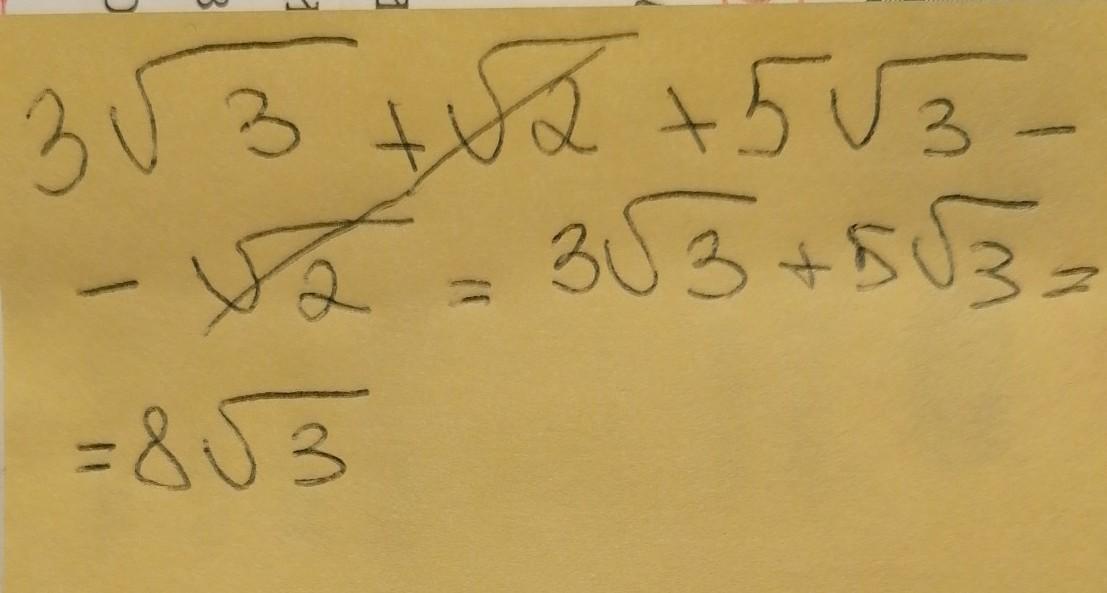 3√3 + √2 + 5√3 -
- √2 = 3√3 + 5√3 =
= 8√3